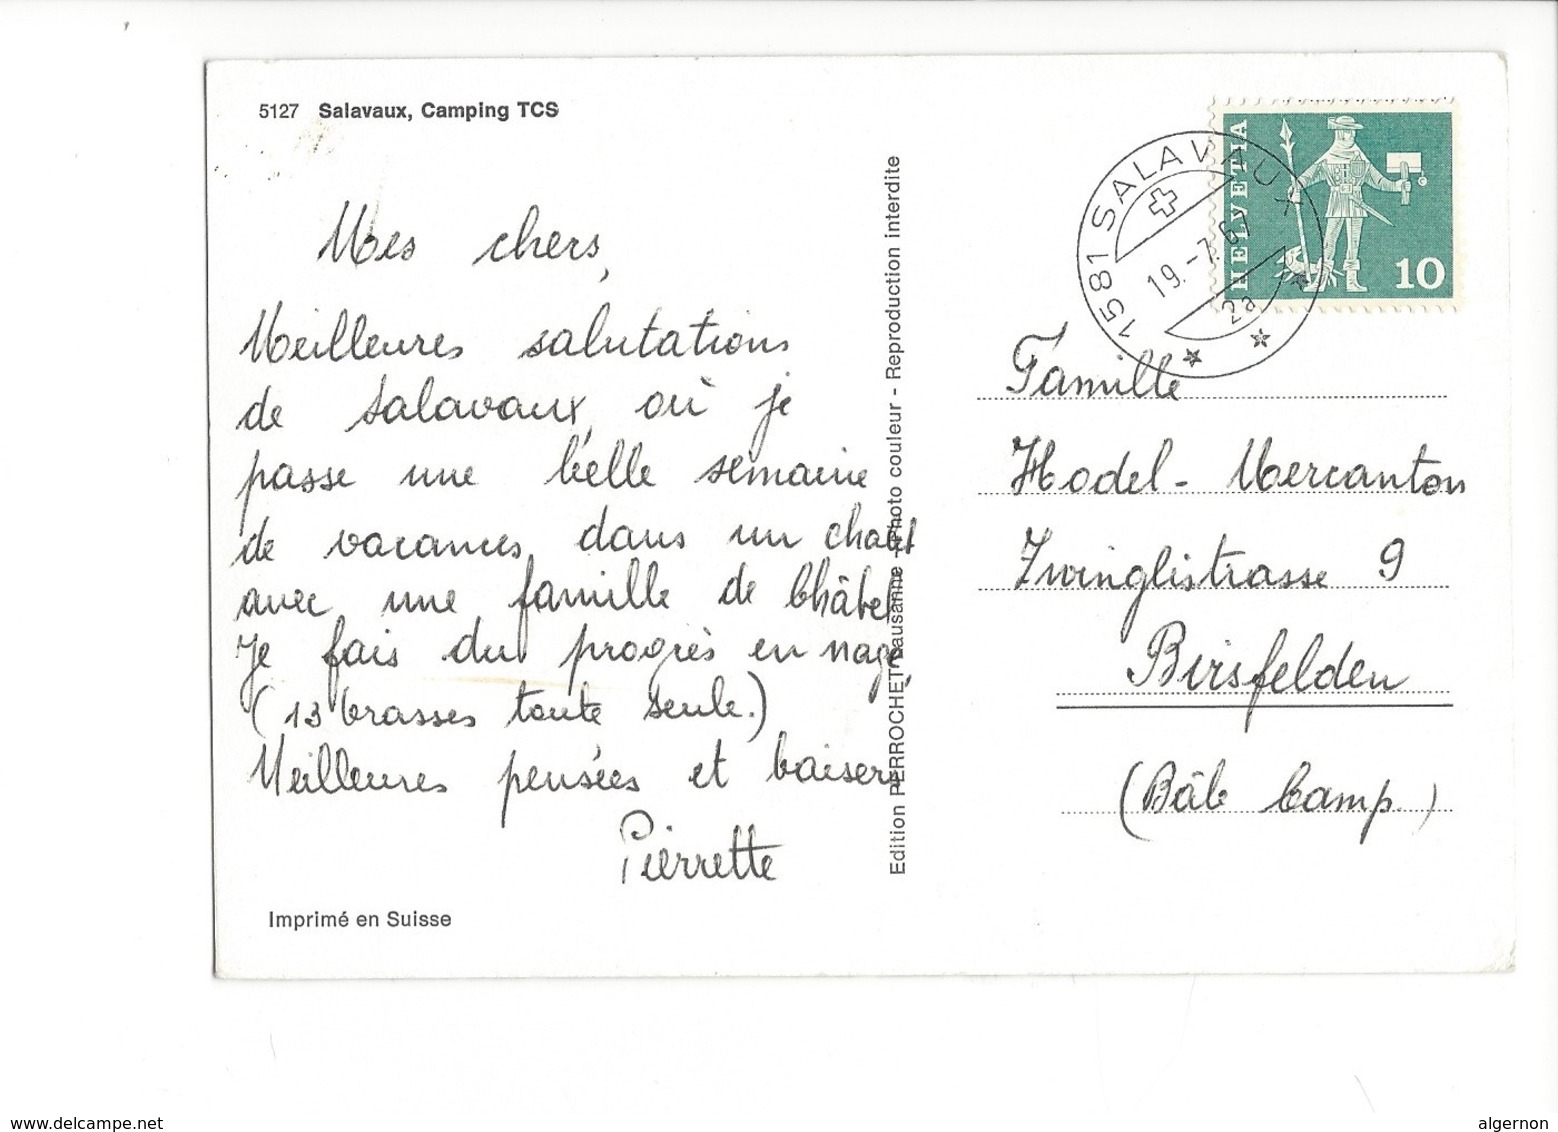 5127 Salavaux, Camping TCS
Mes chers,
Meilleures salutations
de Salavaux, où je
passe une belle semaine
de vacances, dans un chalet
avec une famille de Châtel
Je fais du progrès en nage,
(13 brasses toute seule.)
Meilleures pensées et baisers
Pierrette
Imprimé en Suisse
Edition PERROCHET Lausanne - Photo couleur - Reproduction interdite
HELVETIA
10
1581 SALAVAUX
19.-7.67
2a
Famille
Hodel - Mercanton
Zwinglistrasse 9
Birsfelden
(Bâle Camp.)
www.delcampe.net
algernon